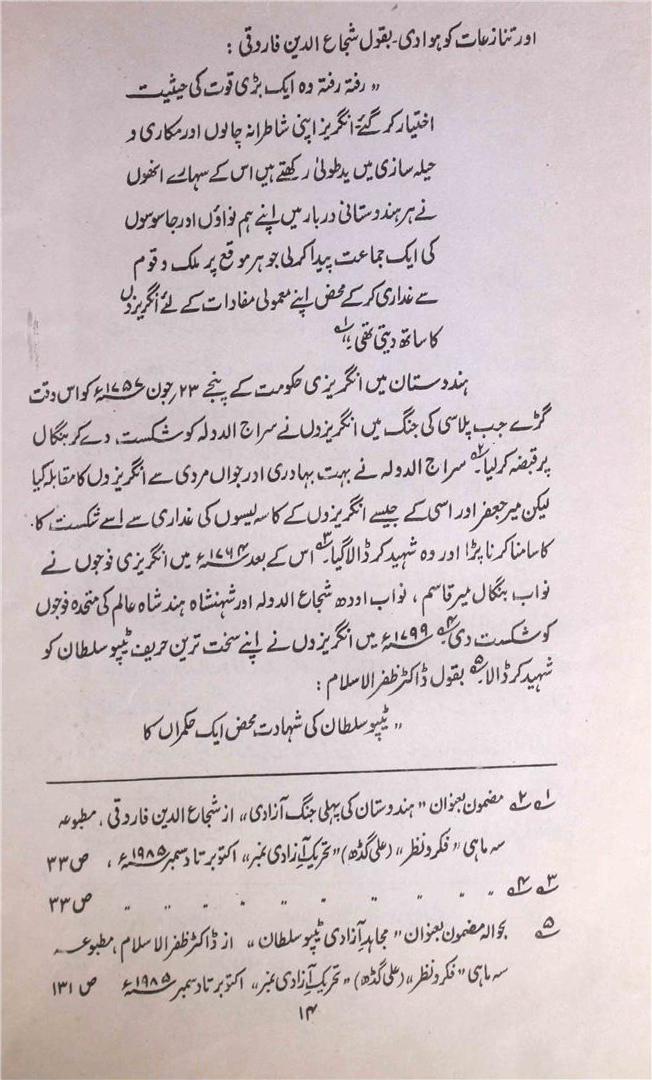 اور تنازعات کو ہوا دی۔ بقول شجاع الدین فاروقی :
" رفتہ رفتہ وہ ایک بڑی قوت کی حیثیت
اختیار کر گئے۔ انگریز اپنی شاطرانہ چالوں اور مکاری و
حیلہ سازی میں یدطولیٰ رکھتے ہیں اس کے سہارے انھوں
نے ہر ہندوستانی دربار میں اپنے ہم نواؤں اور جاسوسوں
کی ایک جماعت پیدا کرلی جو ہر موقع پر ملک و قوم
سے غداری کر کے محض اپنے معمولی مفادات کے لئے انگریزوں
کا ساتھ دیتی تھی۔" ۱؎
ہندوستان میں انگریزی حکومت کے پنجے ۲۳؍ جون ۱۷۵۷ء کو اس وقت
گڑے جب پلاسی کی جنگ میں انگریزوں نے سراج الدولہ کو شکست دے کر بنگال
پر قبضہ کر لیا۔ ۲؎ سراج الدولہ نے بہت بہادری اور جواں مردی سے انگریزوں کا مقابلہ کیا
لیکن میر جعفر اور اسی کے جیسے انگریزوں کے کاسہ لیسوں کی غداری سے اسے شکست کا
کا سامنا کرنا پڑا اور وہ شہید کر ڈالا گیا۔ ۳؎ اس کے بعد ۱۷۶۴ء میں انگریزی فوجوں نے
نواب بنگال میر قاسم ، نواب اودھ شجاع الدولہ اور شہنشاہ ہند شاہ عالم کی متحدہ فوجوں
کو شکست دی۔ ۴؎ ۱۷۹۹ء میں انگریزوں نے اپنے سخت ترین حریف ٹیپو سلطان کو
شہید کر ڈالا۔ ۵؎ بقول ڈاکٹر ظفر الاسلام :
" ٹیپو سلطان کی شہادت محض ایک حکمراں کا
۱؎ ۲؎ مضمون بعنوان " ہندوستان کی پہلی جنگ آزادی " از شجاع الدین فاروقی ، مطبوعہ
سہ ماہی " فکر و نظر " (علی گڈھ) " تحریکِ آزادی نمبر " اکتوبر تا دسمبر ۱۹۸۵ء ، ص ۳۳
۳؎ ۴؎ " " " " " " " ص ۳۳
۵؎ بحوالہ مضمون بعنوان " مجاہدِ آزادی ٹیپو سلطان " از ڈاکٹر ظفر الاسلام ، مطبوعہ
سہ ماہی " فکر و نظر " (علی گڈھ) " تحریکِ آزادی نمبر " اکتوبر تا دسمبر ۱۹۸۵ء ص ۱۳۱
۱۴